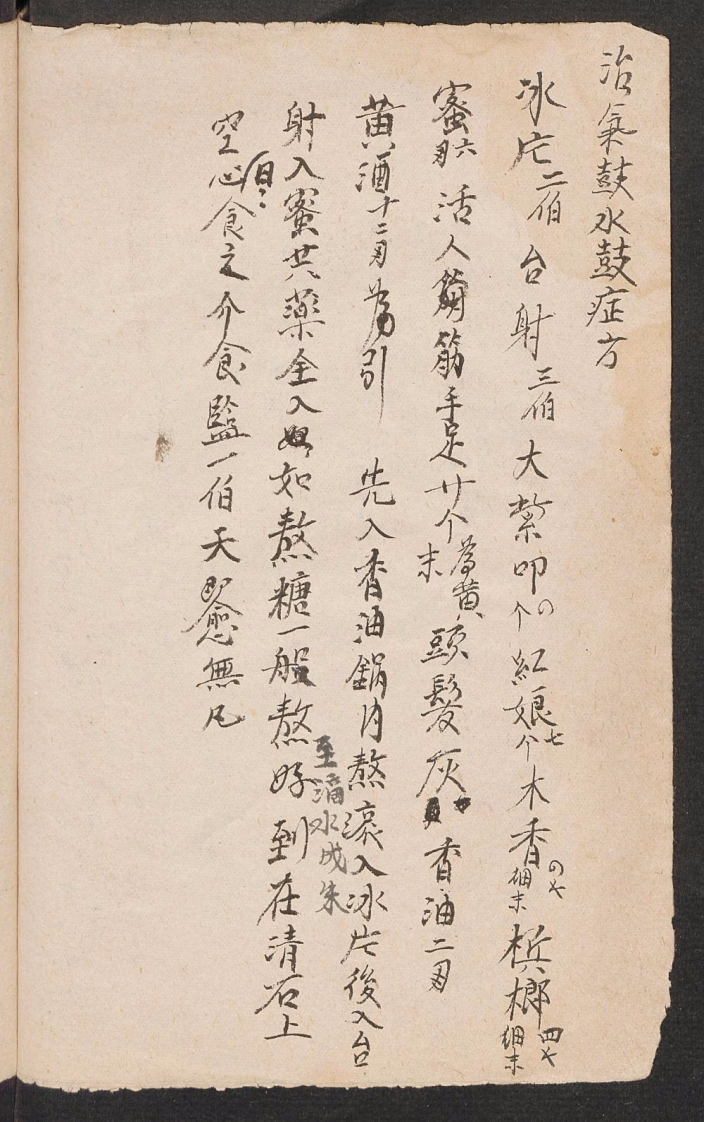 治氣鼓水鼓症方
冰片二伯台射三伯大紫叩の个紅娘七个木香の細末梹榔四細末
蜜六刄活人觔筋手足廿个為黄末頭髮灰香油二刄
黄酒十二刄為引 先入香油鍋内熬滚入冰片後入台
至滴水成朱
射入蜜共藥全入如熬糖一般熬好到在清石上
空心食之介食監一伯天即愈無凡
自